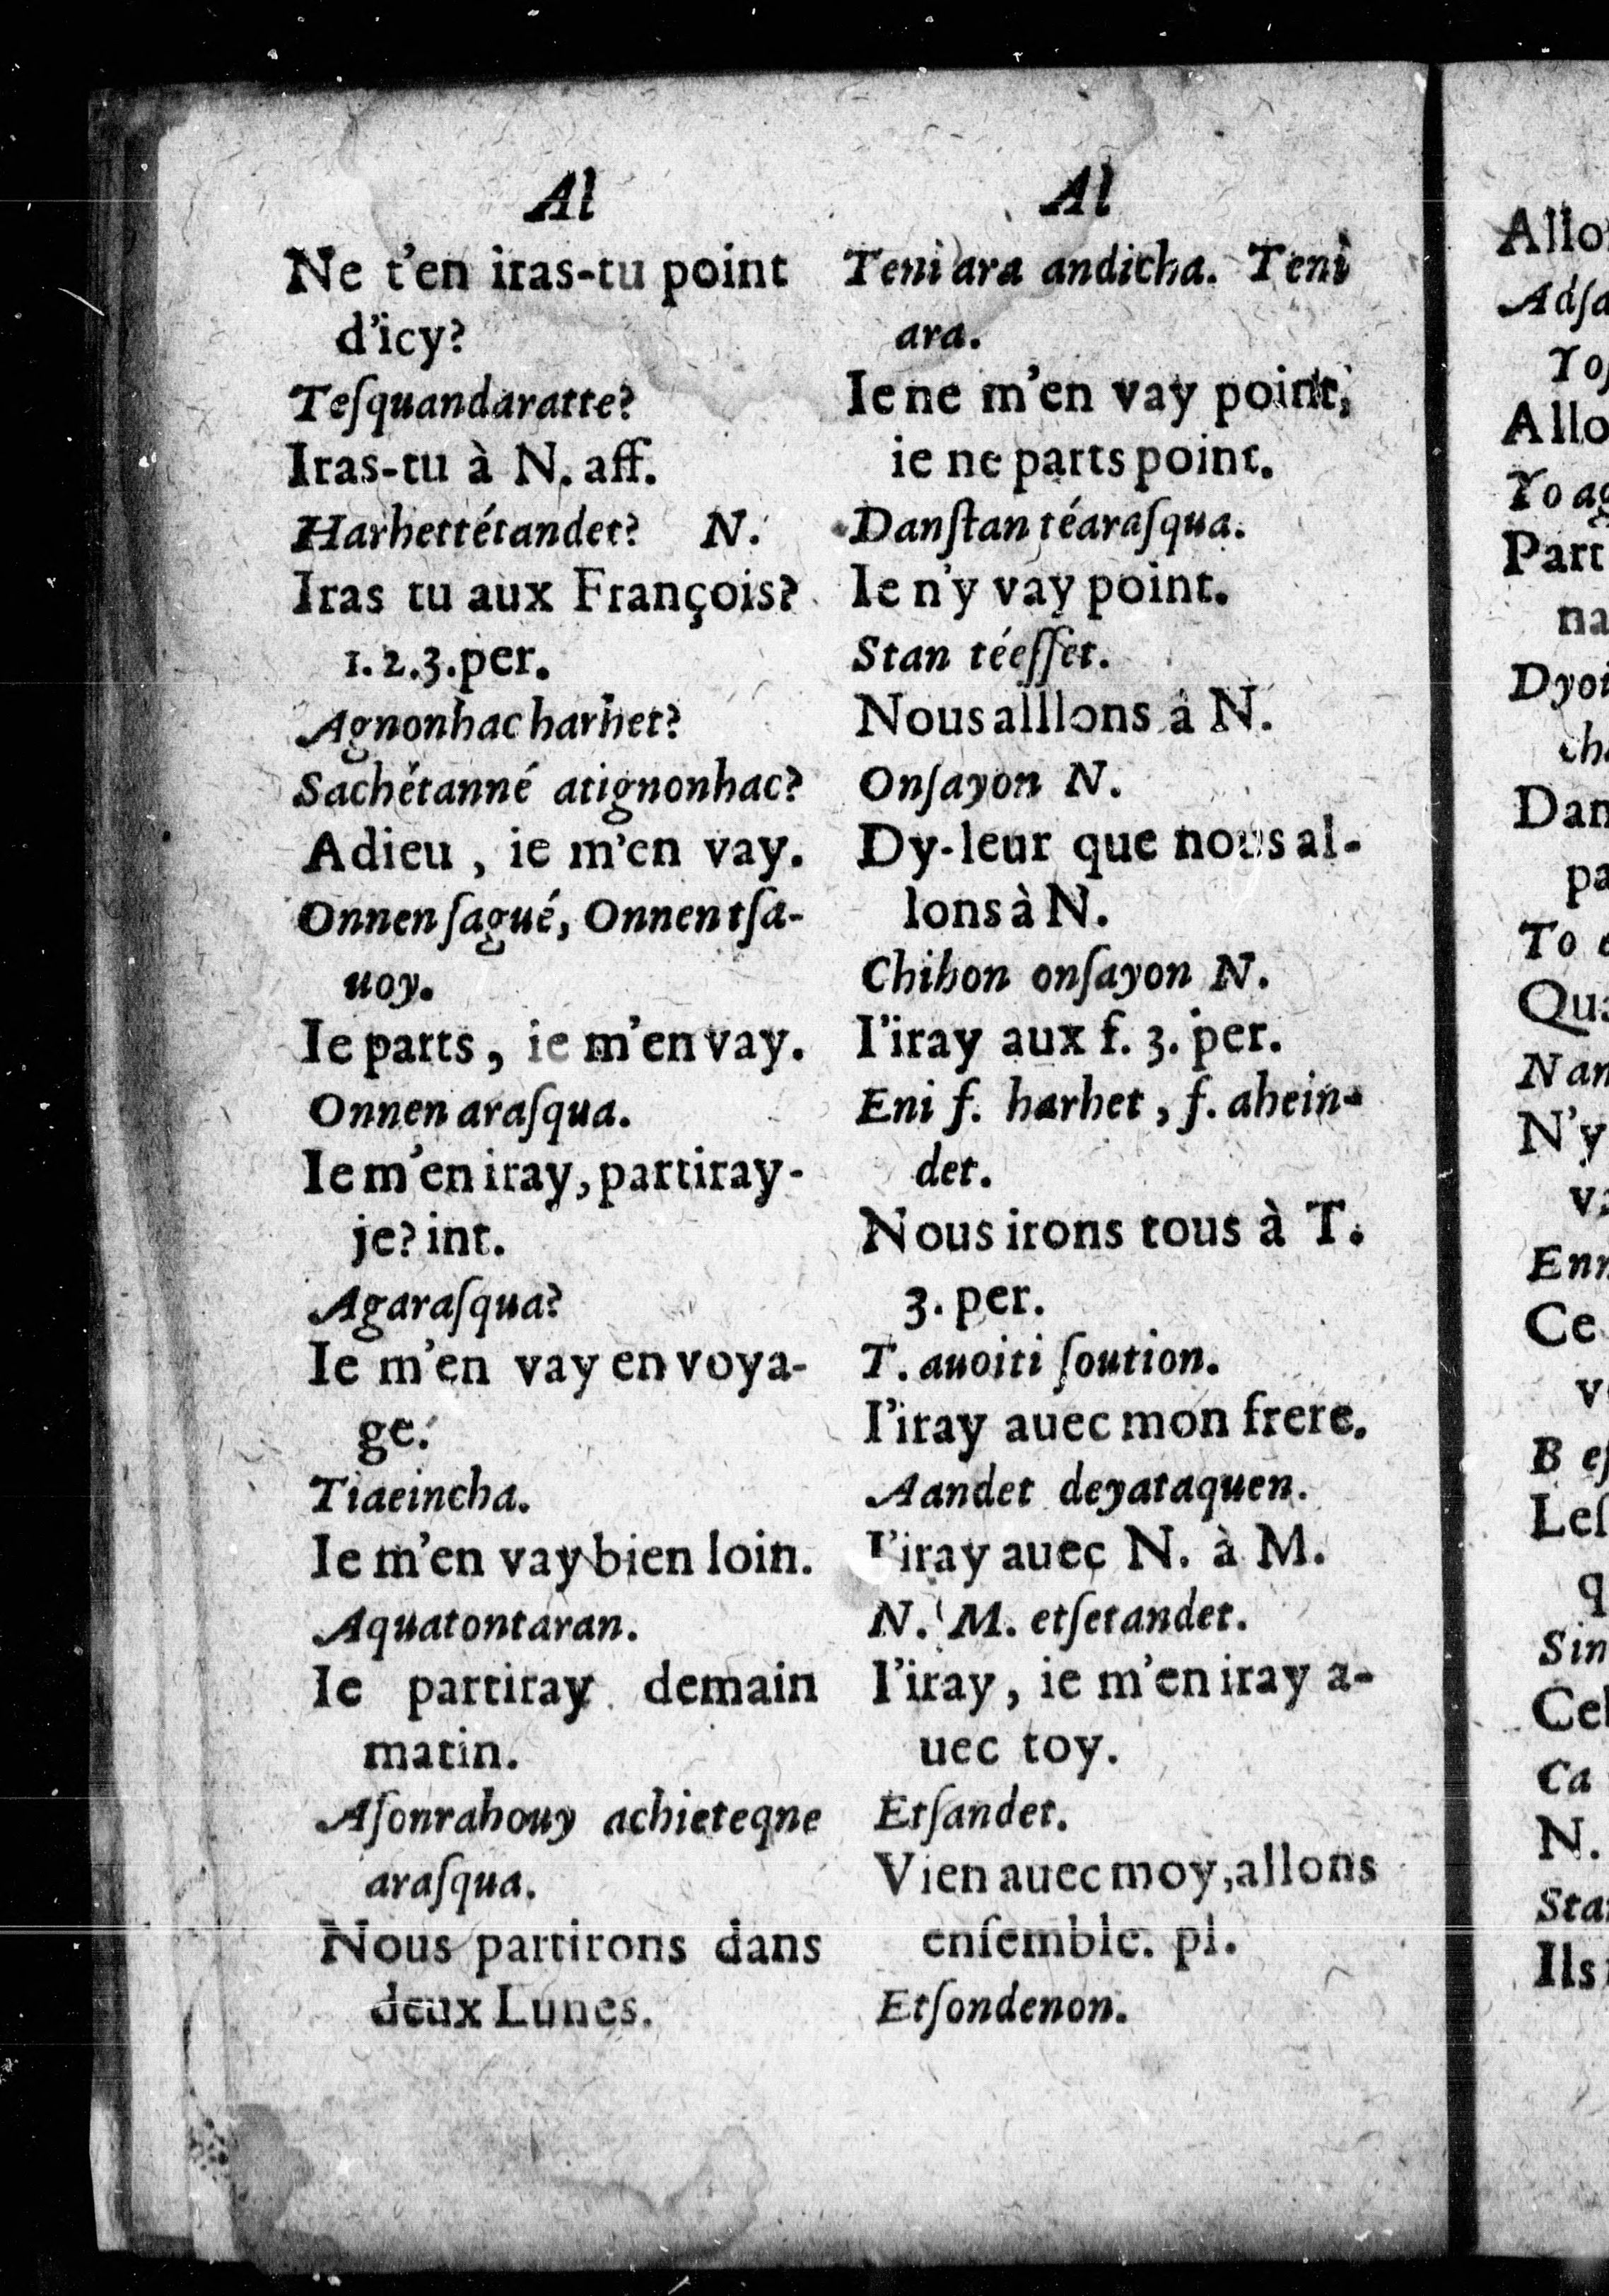 Al
Ne t'en iras-tu point
d'icy?
Teſquandaratte?
Iras-tu à N. aff.
Harhettétandet? N.
Iras tu aux François?
1. 2. 3. per.
Agnonhac harhet?
Sachétanné atignonhac?
Adieu, ie m'en vay.
Onnen ſagué, Onnen tſa-
uoy.
Ie parts, ie m'en vay.
Onnen araſqua.
Ie m'en iray, partiray-
je? int.
Agaraſqua?
Ie m'en vay en voya-
ge.
Tiaeincha.
Ie m'en vay bien loin.
Aquatontaran.
Ie partiray demain
matin.
Aſonrahouy achieteqne
araſqua.
Nous partirons dans
deux Lunes.
Al
Teni ara andicha. Teni
ara.
Ie ne m'en vay point,
ie ne parts point.
Danſtan téaraſqua.
Ie n'y vay point.
Stan téeſſet.
Nous alllons à N.
Onſayon N.
Dy-leur que nous al-
lons à N.
Chihon onſayon N.
I'iray aux f. 3. per.
Eni f. harhet, f. ahein-
det.
Nous irons tous à T.
3. per.
T. auoiti ſoution.
I'iray auec mon frere.
Aandet deyataquen.
I'iray auec N. à M.
N. M. etſetandet.
I'iray, ie m'en iray a-
uec toy.
Etſandet.
Vien auec moy, allons
enſemble. pl.
Etſondenon.
Allo
Adſa
Allo
Yo ag
Part
na
Dyoi
Dan
pa
To
Qua
Nan
N'y
va
Enn
Ce
B eſ
Leſ
q
Sin
Cel
Ca
N.
Sta
Ils